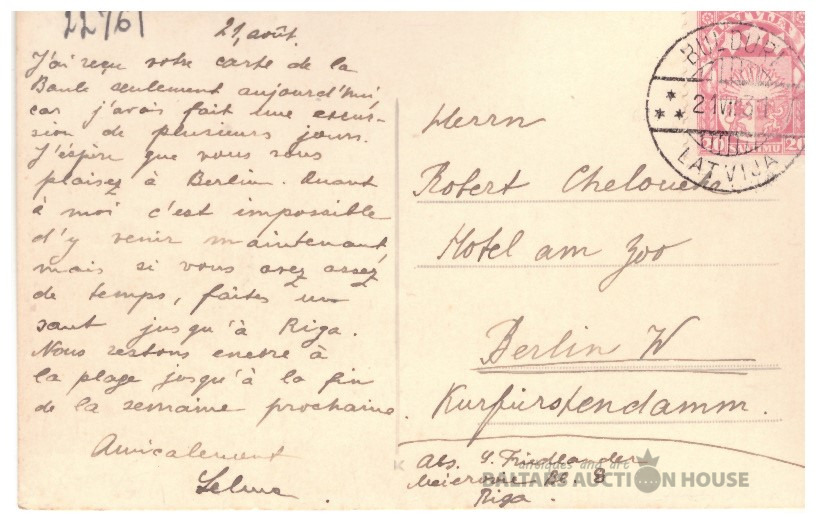 22761
21, août.
J'ai reçu votre carte de la
Baule seulement aujourd'hui,
car j'avais fait une excur-
sion de plusieurs jours.
J'éspère que vous vous
plaisez à Berlin. Quant
à moi c'est impossible
d'y venir maintenant,
mais si vous avez assez
de temps, faites un
saut jusqu'à Riga.
Nous restons encore à
la plage jusqu'à la fin
de la semaine prochaine.
Amicalement
Selma
BULDURI
LATVIJA
20
Herrn
Robert
Hotel am Zoo
Berlin W
Kurfürstendamm.
Abs. Friedlander
8
Riga.
antiques and art
BALTARS AUCTION HOUSE